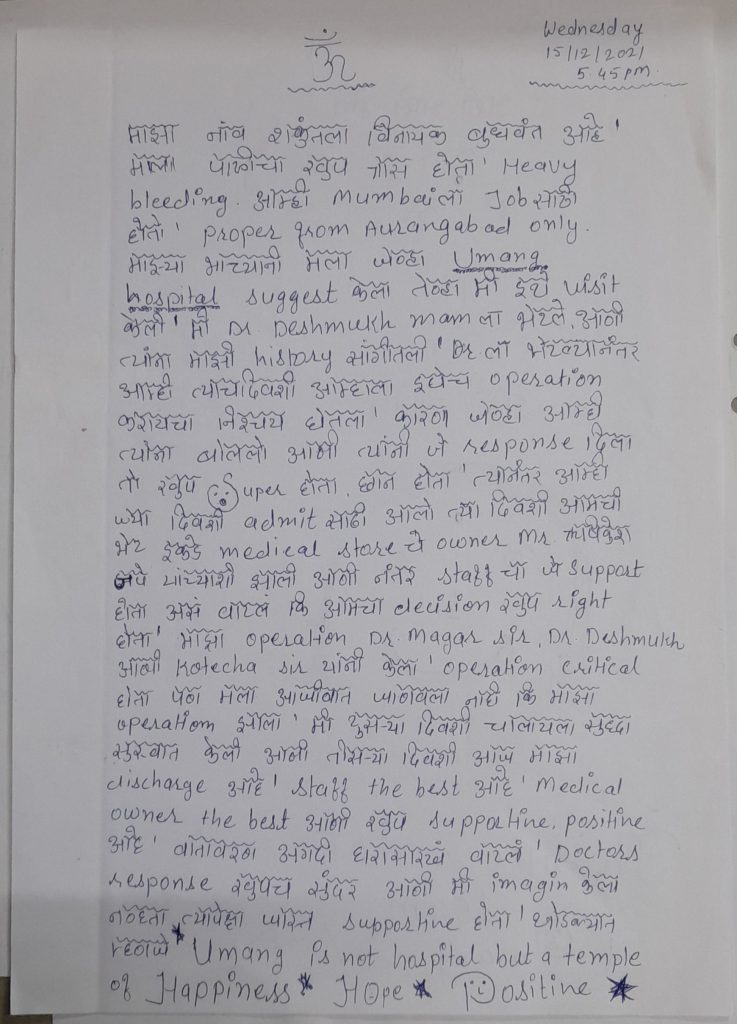 ॐ
Wednesday
15/12/2021
5.45 pm.
माझा नांव शकुंतला विनायक बुधवंत आहे'
मला पाळीचा खुप त्रास होता' Heavy
bleeding. आम्ही Mumbaiला Job साठी
होतो' proper from Aurangabad only.
माझ्या भाच्यानी मला जेव्हा Umang
hospital suggest केला तेव्हा मी इथे visit
केली' मी Dr. Deshmukh mam ला भेटले, आणी
त्यांना माझी history सांगीतली' Dr. ला भेटल्यानंतर
आम्ही त्याचदिवशी आम्हाला इथेच operation
करायचा निश्चय घेतला' कारण जेव्हा आम्ही
त्यांना बोललो आणी त्यांनी जे response दिला
तो खुप Super होता, छान होता' त्यानंतर आम्ही
ज्या दिवशी admit साठी आलो त्या दिवशी आमची
भेट इकडे medical store चे owner Mr. ऋषिकेश
यांच्याशी झाली आणी नंतर staff चा जे support
होता असं वाटलं कि आमचा decision खुप right
होता' माझा operation Dr. Magar sir, Dr. Deshmukh
आणी Kotecha sir यांनी केला' operation critical
होता पण मला आजीबात जाणवला नाही कि माझा
operation झाला' मी दुसऱ्या दिवशी चालायला सुद्धा
सुरुवात केली आणी तीसऱ्या दिवशी आज माझा
discharge आहे' staff the best आहे' Medical
owner the best आणी खुप supportine, positine
आहे' वातावरण अगदी घरासारखं वाटलं' Doctors
response खुपच सुंदर आणी मी imagin केला
नव्हता त्यापेक्षा जास्त supportine होता' थोडक्यात
म्हणजे * Umang is not hospital but a temple
of Happiness * Hope * Positine *